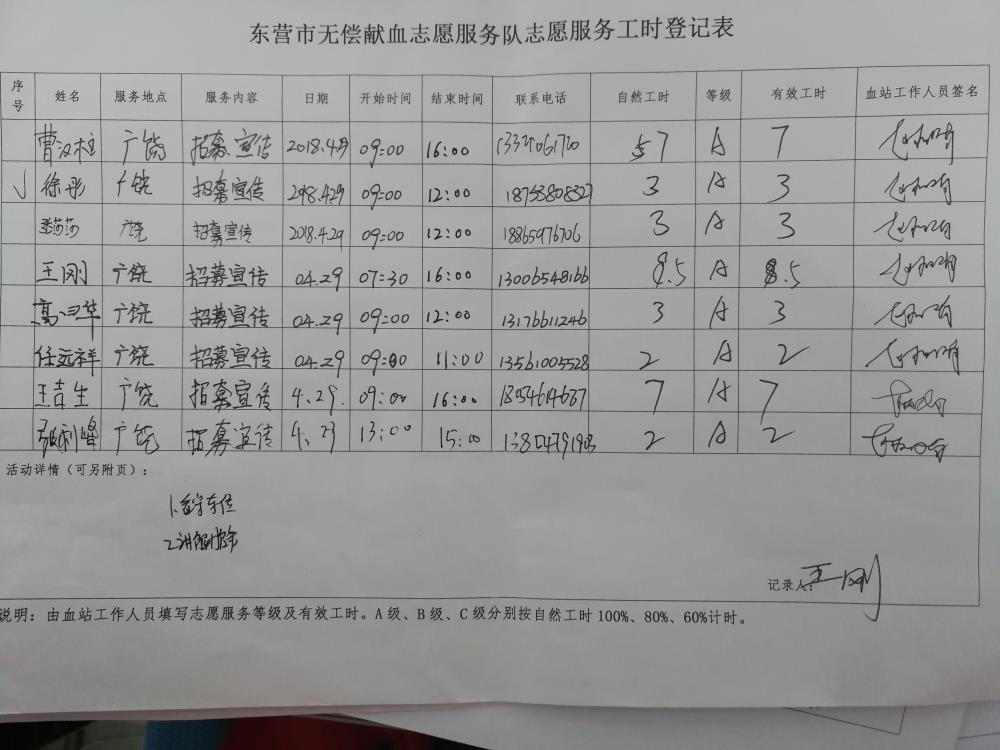 东营市无偿献血志愿服务队志愿服务工时登记表
序号 姓名 服务地点 服务内容 日期 开始时间 结束时间 联系电话 自然工时 等级 有效工时 血站工作人员签名
曹汉柱 广饶 招募宣传 09:00 16:00 7 A 7
√ 徐彤 广饶 招募宣传 09:00 12:00 3 A 3
莎莎 广饶 招募宣传 2018.4.29 09:00 12:00 18865976706 3 A 3
王刚 广饶 招募宣传 04.29 07:30 16:00 13006548166 8.5 A 8.5
广饶 招募宣传 04.29 09:00 12:00 13176611246 3 A 3
任远祥 广饶 招募宣传 04.29 09:00 11:00 13561005528 2 A 2
王吉生 广饶 招募宣传 4.29. 09:00 16:00 18954614687 7 A 7
张利峰 广饶 招募宣传 4.29 13:00 15:00 2 A 2
活动详情（可另附页）：
1.
2.
记录人：王刚
说明：由血站工作人员填写志愿服务等级及有效工时。A级、B级、C级分别按自然工时100%、80%、60%计时。